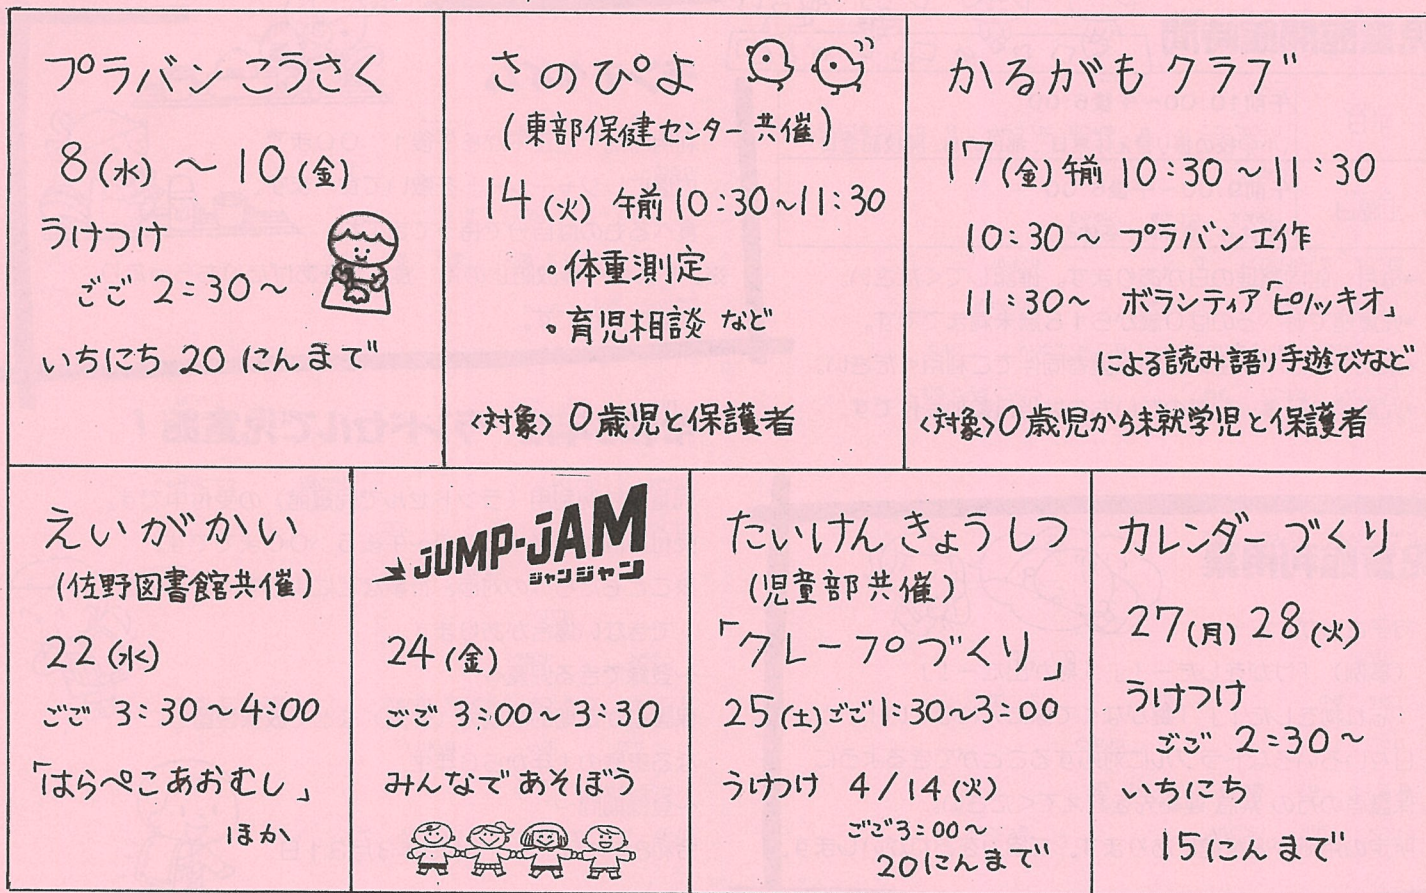 プラバンこうさく
8(水)～10(金)
うけつけ
ごご 2:30～
いちにち 20にんまで
さのぴよ
(東部保健センター共催)
14(火) 午前10:30～11:30
。体重測定
。育児相談 など
<対象>0歳児と保護者
かるがもクラブ
17(金)午前 10:30～11:30
10:30～ プラバン工作
11:30～ ボランティア「ピノッキオ」
による読み語り手遊びなど
<対象>0歳児から未就学児と保護者
えいがかい
(佐野図書館共催)
22(水)
ごご 3:30～4:00
「はらぺこあおむし」
ほか
JUMP-JAM
ジャンジャン
24(金)
ごご 3:00～3:30
みんなであそぼう
たいけんきょうしつ
(児童部共催)
「クレープづくり」
25(土)ごご1:30～3:00
うけつけ 4/14(火)
ごご3:00～
20にんまで
カレンダーづくり
27(月) 28(火)
うけつけ
ごご 2:30～
いちにち
15にんまで